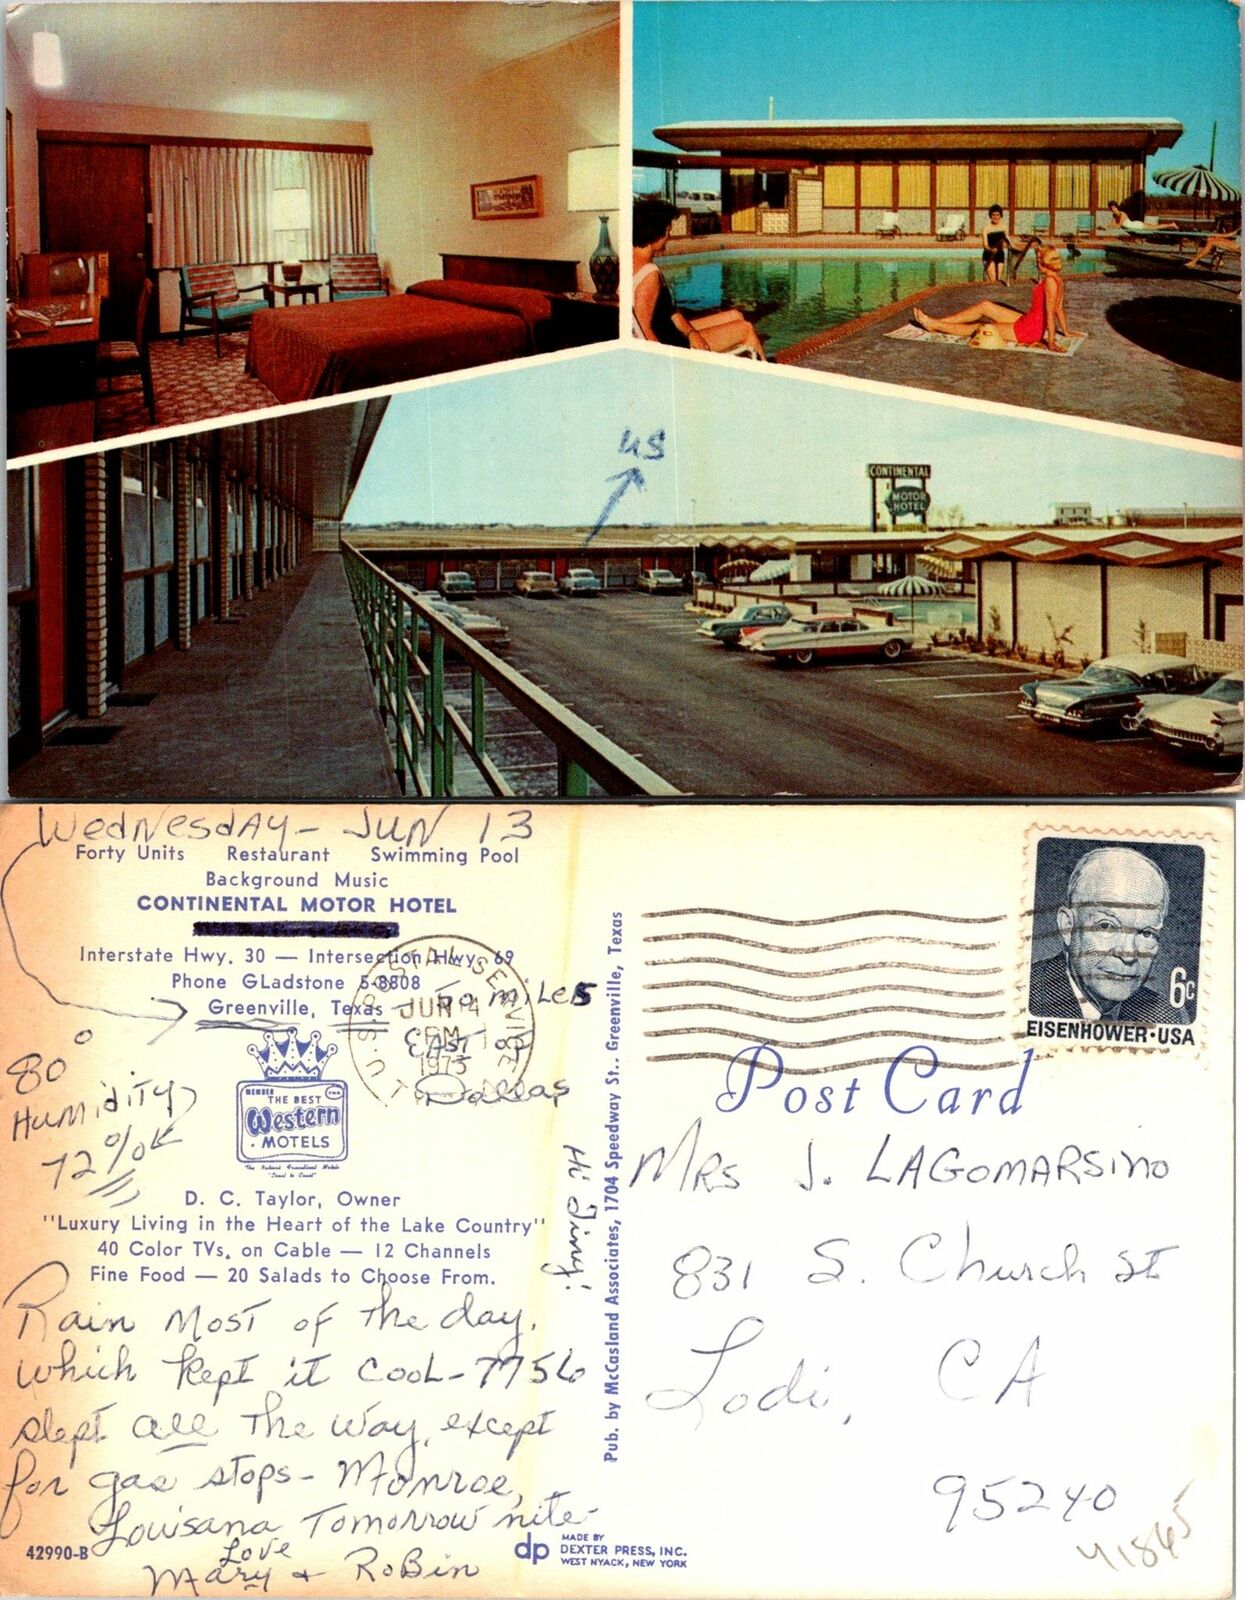 us
CONTINENTAL
MOTOR
HOTEL
Wednesday - JUN 13
Forty Units Restaurant Swimming Pool
Background Music
CONTINENTAL MOTOR HOTEL
Interstate Hwy. 30 — Intersection Hwy. 69
Phone GLadstone 5-8808
Greenville, Texas
50 MILES
EAST of
Dallas
U.S. POSTAL SERVICE
JUN 14
PM
1973
80°
Humidity
72%
MEMBER
THE BEST
Western
MOTELS
D. C. Taylor, Owner
"Luxury Living in the Heart of the Lake Country"
40 Color TVs. on Cable — 12 Channels
Fine Food — 20 Salads to Choose From.
Rain most of the day,
which kept it cool -
slept all the way, except
for gas stops - Monroe,
Louisana Tomorrow nite-
Love
Mary + Robin
42990-B
Pub. by McCasland Associates, 1704 Speedway St.. Greenville, Texas
dp MADE BY
DEXTER PRESS, INC.
WEST NYACK, NEW YORK
6c
EISENHOWER·USA
Post Card
Mrs J. LAGOMARSINO
831 S. Church St
Lodi, CA
95240
41865